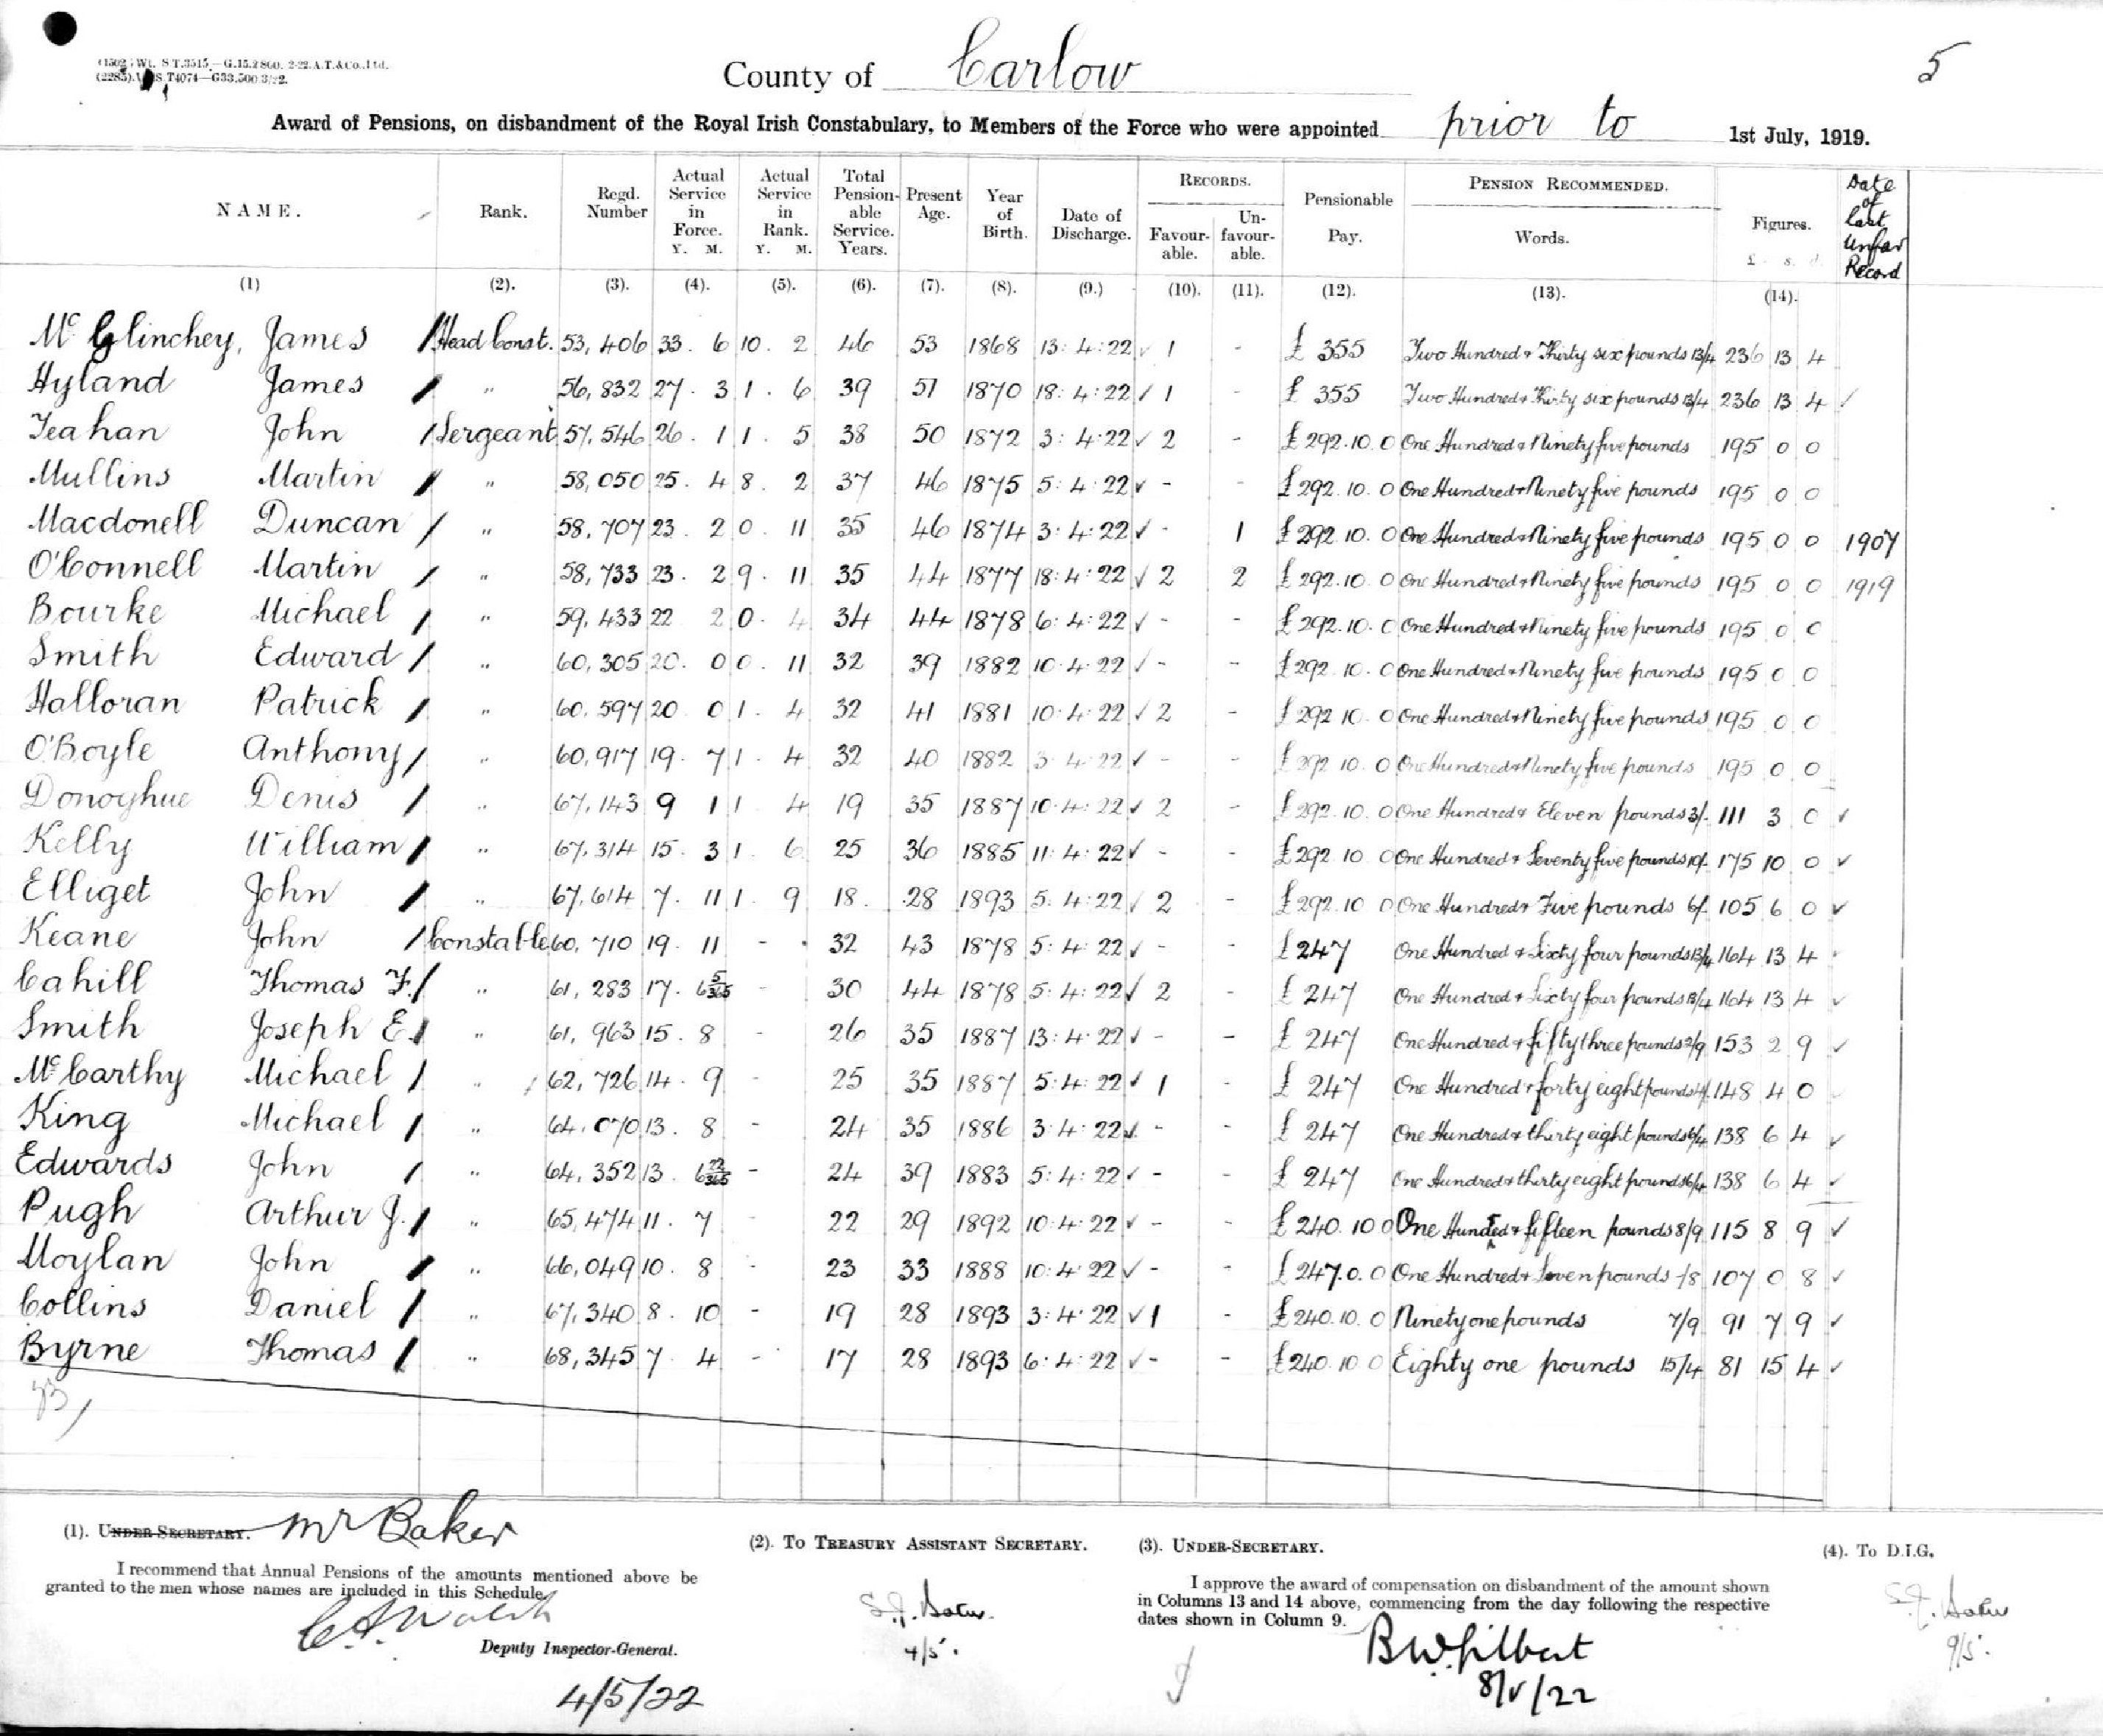 (1502) Wt. S T.3515—G.15.2860. 2-22. A.T.&Co., Ltd.
T4074—G33.500.3/22.
County of Carlow
5
Award of Pensions, on disbandment of the Royal Irish Constabulary, to Members of the Force who were appointed prior to 1st July, 1919.
NAME. Rank. Regd. Number Actual Service in Force. Y. M. Actual Service in Rank. Y. M. Total Pensionable Service. Years. Present Age. Year of Birth. Date of Discharge. RECORDS. Favourable. Unfavourable. Pensionable Pay. PENSION RECOMMENDED. Words. Figures. £ s. d. Date of last Unfav Record
(1) (2). (3). (4). (5). (6). (7). (8). (9.) (10). (11). (12). (13). (14).
McGlinchey, James Head Const. 53,406 33. 6 10. 2 46 53 1868 13:4:22 ✓ 1 - £355 Two Hundred & Thirty six pounds 13/4 236 13 4
Hyland James " 56,832 27. 3 1. 6 39 51 1870 18:4:22 ✓ 1 - £355 Two Hundred & Thirty six pounds 13/4 236 13 4 ✓
Teahan John Sergeant 57,546 26. 1 1. 5 38 50 1872 3:4:22 ✓ 2 - £292.10.0 One Hundred & Ninety five pounds 195 0 0
Mullins Martin " 58,050 25. 4 8. 2 37 46 1875 5:4:22 ✓ - - £292.10.0 One Hundred & Ninety five pounds 195 0 0
Macdonell Duncan " 58,707 23. 2 0. 11 35 46 1874 3:4:22 ✓ - 1 £292.10.0 One Hundred & Ninety five pounds 195 0 0 1907
O'Connell Martin " 58,733 23. 2 9. 11 35 44 1877 18:4:22 ✓ 2 2 £292.10.0 One Hundred & Ninety five pounds 195 0 0 1919
Bourke Michael " 59,433 22 2 0. 4 34 44 1878 6:4:22 ✓ - - £292.10.0 One Hundred & Ninety five pounds 195 0 0
Smith Edward " 60,305 20. 0 0. 11 32 39 1882 10:4:22 ✓ - - £292.10.0 One Hundred & Ninety five pounds 195 0 0
Halloran Patrick " 60,597 20 0 1. 4 32 41 1881 10:4:22 ✓ 2 - £292 10.0 One Hundred & Ninety five pounds 195 0 0
O'Boyle Anthony " 60,917 19. 7 1. 4 32 40 1882 3:4:22 ✓ - - £292 10.0 One Hundred & Ninety five pounds 195 0 0
Donoghue Denis " 67,143 9 1 1. 4 19 35 1887 10:4:22 ✓ 2 - £292.10.0 One Hundred & Eleven pounds 3/- 111 3 0 ✓
Kelly William " 67,314 15. 3 1. 6 25 36 1885 11:4:22 ✓ - - £292.10 0 One Hundred & Seventy five pounds 10/- 175 10 0 ✓
Elliget John " 67,614 7. 11 1. 9 18. 28 1893 5:4:22 ✓ 2 - £292.10 0 One Hundred & Five pounds 6/- 105 6 0 ✓
Keane John Constable 60,710 19. 11 - 32 43 1878 5:4:22 ✓ - - £247 One Hundred & Sixty four pounds 13/4 164 13 4
Cahill Thomas F. " 61,283 17. 6 5/365 - 30 44 1878 5:4:22 ✓ 2 - £247 One Hundred & Sixty four pounds 13/4 164 13 4 ✓
Smith Joseph E. " 61,963 15. 8 - 26 35 1887 13:4:22 ✓ - - £247 One Hundred & fifty three pounds 2/9 153 2 9 ✓
McCarthy Michael " 62,726 14. 9 - 25 35 1887 5:4:22 ✓ 1 - £247 One Hundred & forty eight pounds 4/- 148 4 0
King Michael " 64,070 13. 8 - 24 35 1886 3:4:22 ✓ - - £247 One Hundred & thirty eight pounds 6/4 138 6 4 ✓
Edwards John " 64,352 13. 6 22/365 - 24 39 1883 5:4:22 ✓ - - £247 One Hundred & thirty eight pounds 6/4 138 6 4 ✓
Pugh Arthur J. " 65,474 11. 7 - 22 29 1892 10:4:22 ✓ - - £240.10 0 One Hundred & fifteen pounds 8/9 115 8 9 ✓
Moylan John " 66,049 10. 8 - 23 33 1888 10:4:22 ✓ - - £247.0.0 One Hundred & Seven pounds -/8 107 0 8 ✓
Collins Daniel " 67,340 8. 10 - 19 28 1893 3:4:22 ✓ 1 - £240.10.0 Ninety one pounds 7/9 91 7 9 ✓
Byrne Thomas " 68,345 7. 4 - 17 28 1893 6:4:22 ✓ - - £240.10 0 Eighty one pounds 15/4 81 15 4 ✓
(1). UNDER-SECRETARY. Mr Baker
I recommend that Annual Pensions of the amounts mentioned above be
granted to the men whose names are included in this Schedule.
C.A. Walsh
Deputy Inspector-General.
4/5/22
(2). TO TREASURY ASSISTANT SECRETARY.
4/5.
(3). UNDER-SECRETARY.
I approve the award of compensation on disbandment of the amount shown
in Columns 13 and 14 above, commencing from the day following the respective
dates shown in Column 9.
B.W. Gilbert
8/V/22
(4). To D.I.G.
9/5.